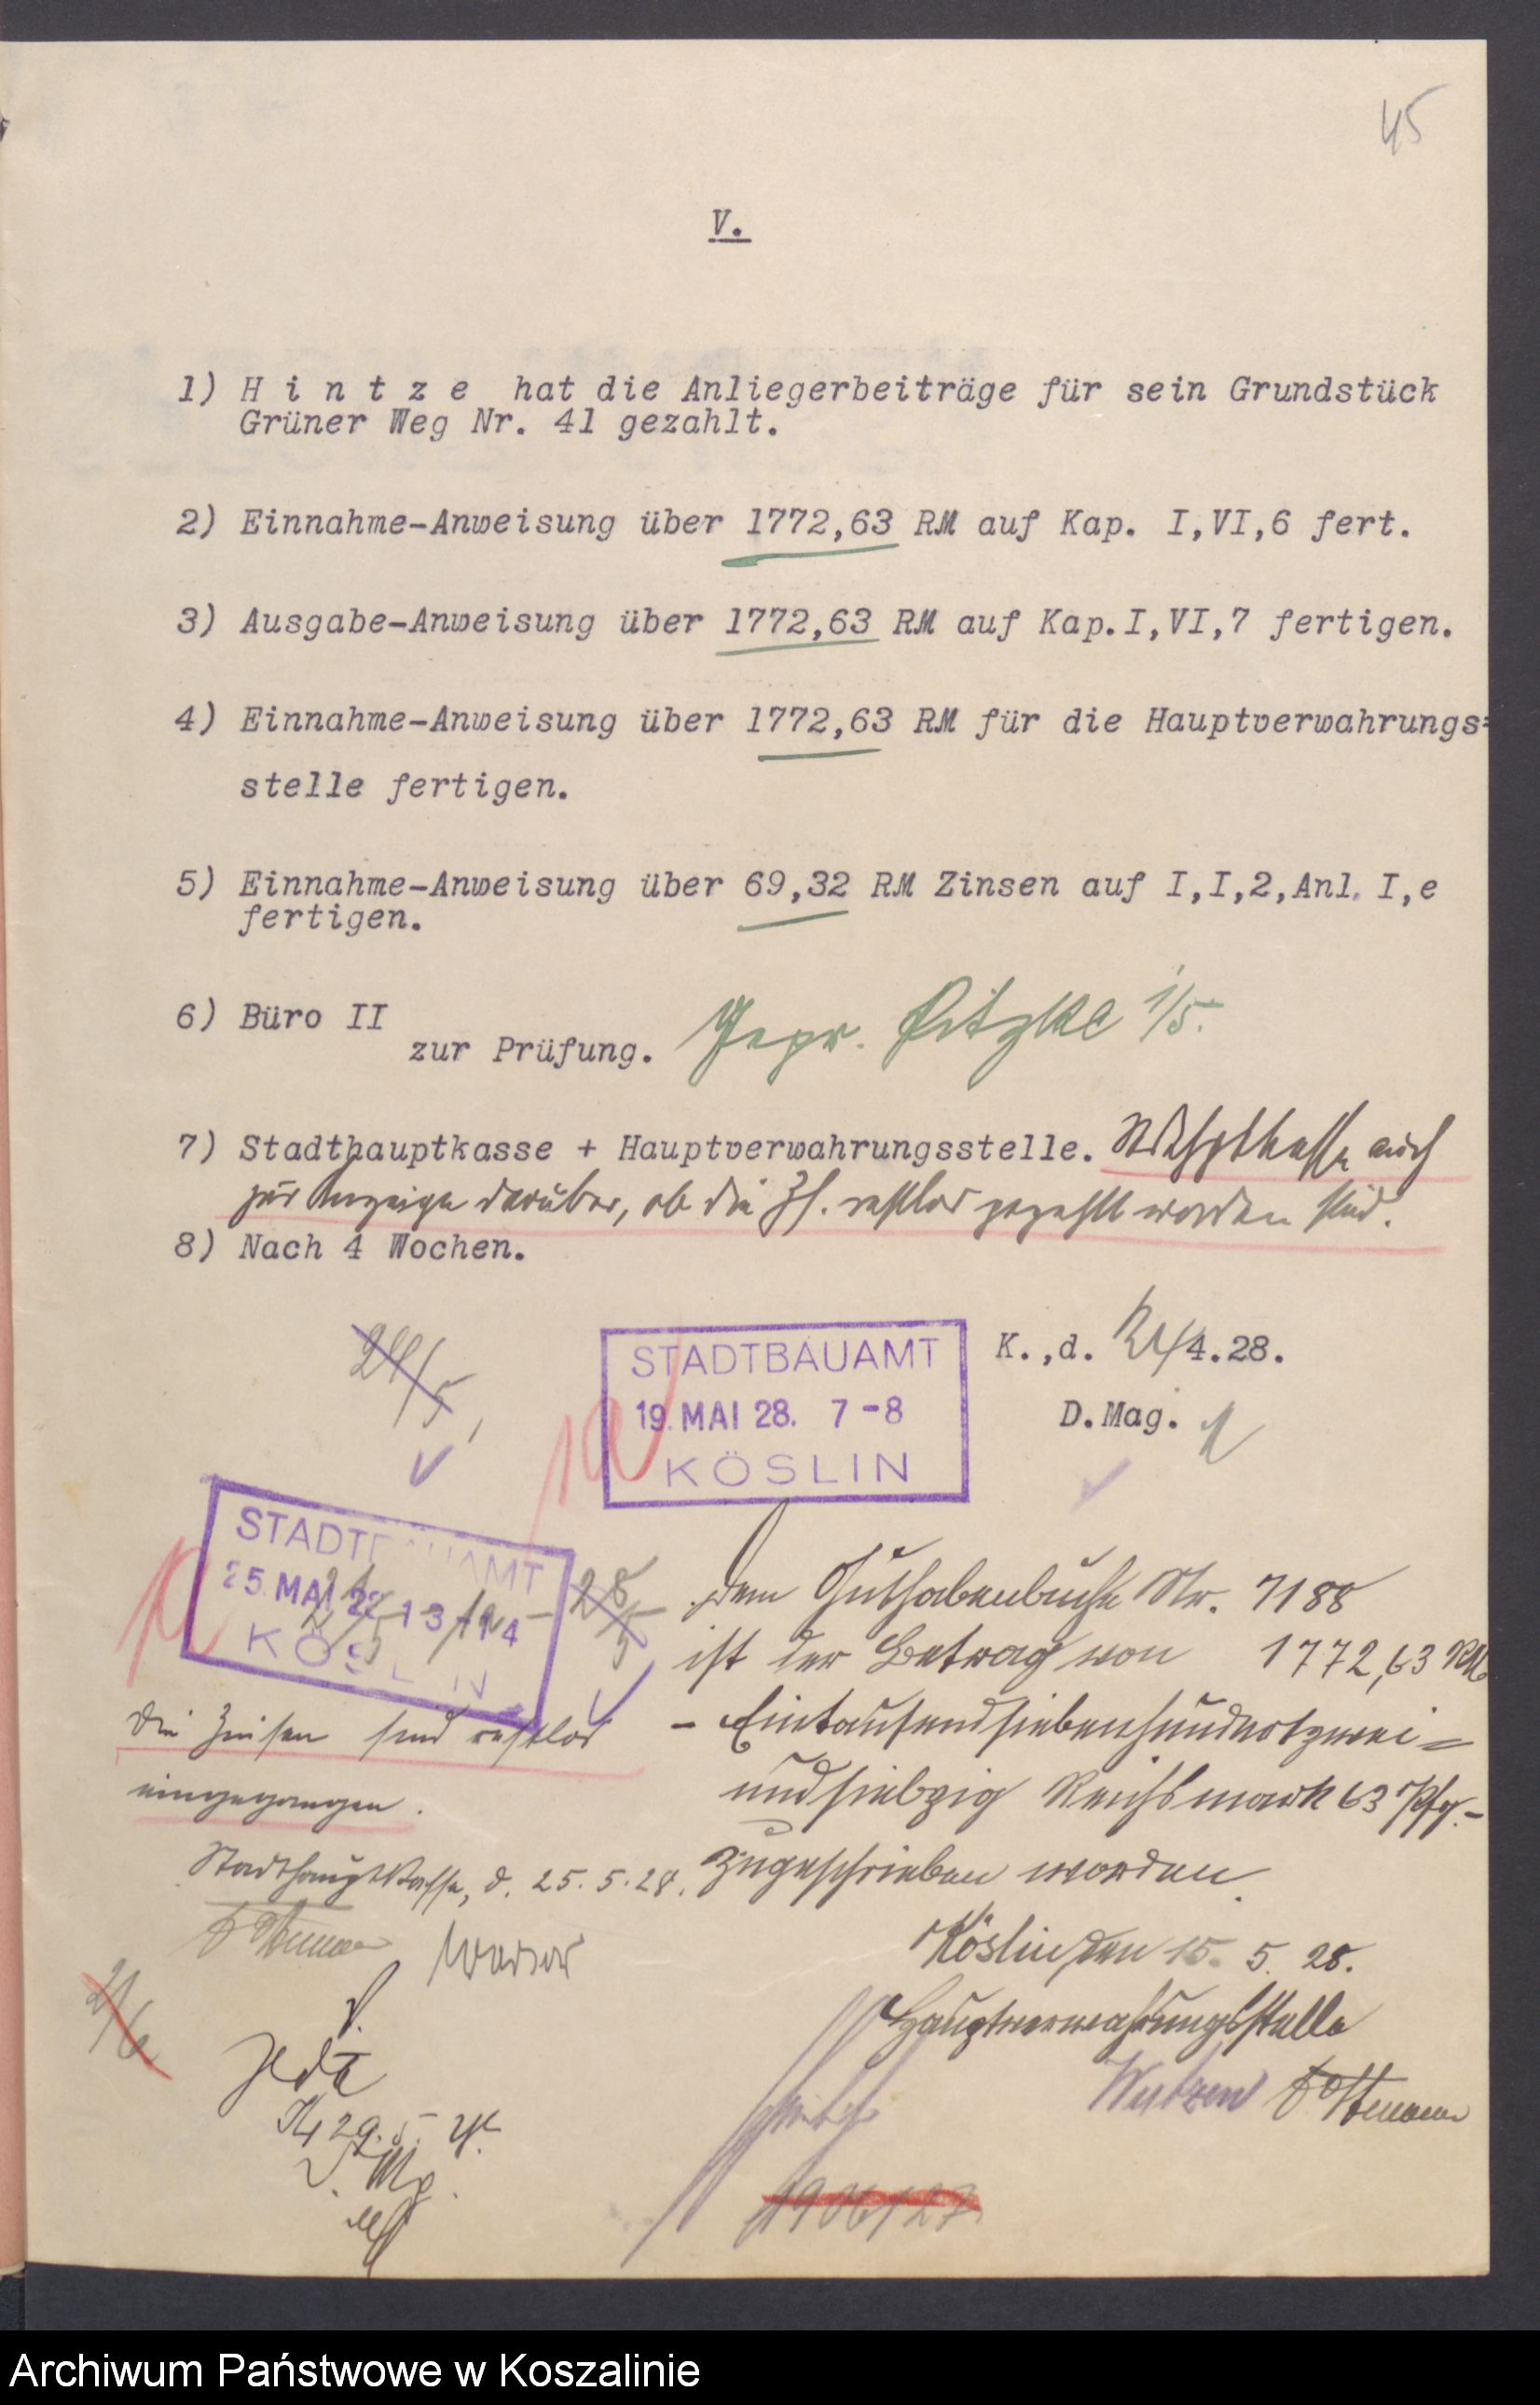 45
V.
1) H i n t z e hat die Anliegerbeiträge für sein Grundstück
Grüner Weg Nr. 41 gezahlt.
2) Einnahme-Anweisung über 1772,63 RM auf Kap. I,VI,6 fert.
3) Ausgabe-Anweisung über 1772,63 RM auf Kap.I,VI,7 fertigen.
4) Einnahme-Anweisung über 1772,63 RM für die Hauptverwahrungs=
stelle fertigen.
5) Einnahme-Anweisung über 69,32 RM Zinsen auf I,I,2,Anl. I,e
fertigen.
6) Büro II
zur Prüfung. Gepr. 1/5.
7) Stadthauptkasse + Hauptverwahrungsstelle. auch
zur Anzeige darüber, ob die restlos gezahlt worden sind.
8) Nach 4 Wochen.
24/5
STADTBAUAMT
19. MAI 28. 7-8
KÖSLIN
K.,d. 24/4.28.
D.Mag.
STADTBAUAMT
25. MAI 13-14
KÖSLIN
28/5
Dem Guthabenbuche Nr. 7188
ist der Betrag von 1772,63 RM
- Eintausendsiebenhundertzwei=
undsiebzig Reichsmark 63 Pfg.-
zugeschrieben worden.
Köslin den 15. 5. 28.
Hauptverwahrungsstelle
Die Zinsen sind restlos
eingegangen.
Stadthauptkasse, d. 25.5.28.
Archiwum Państwowe w Koszalinie